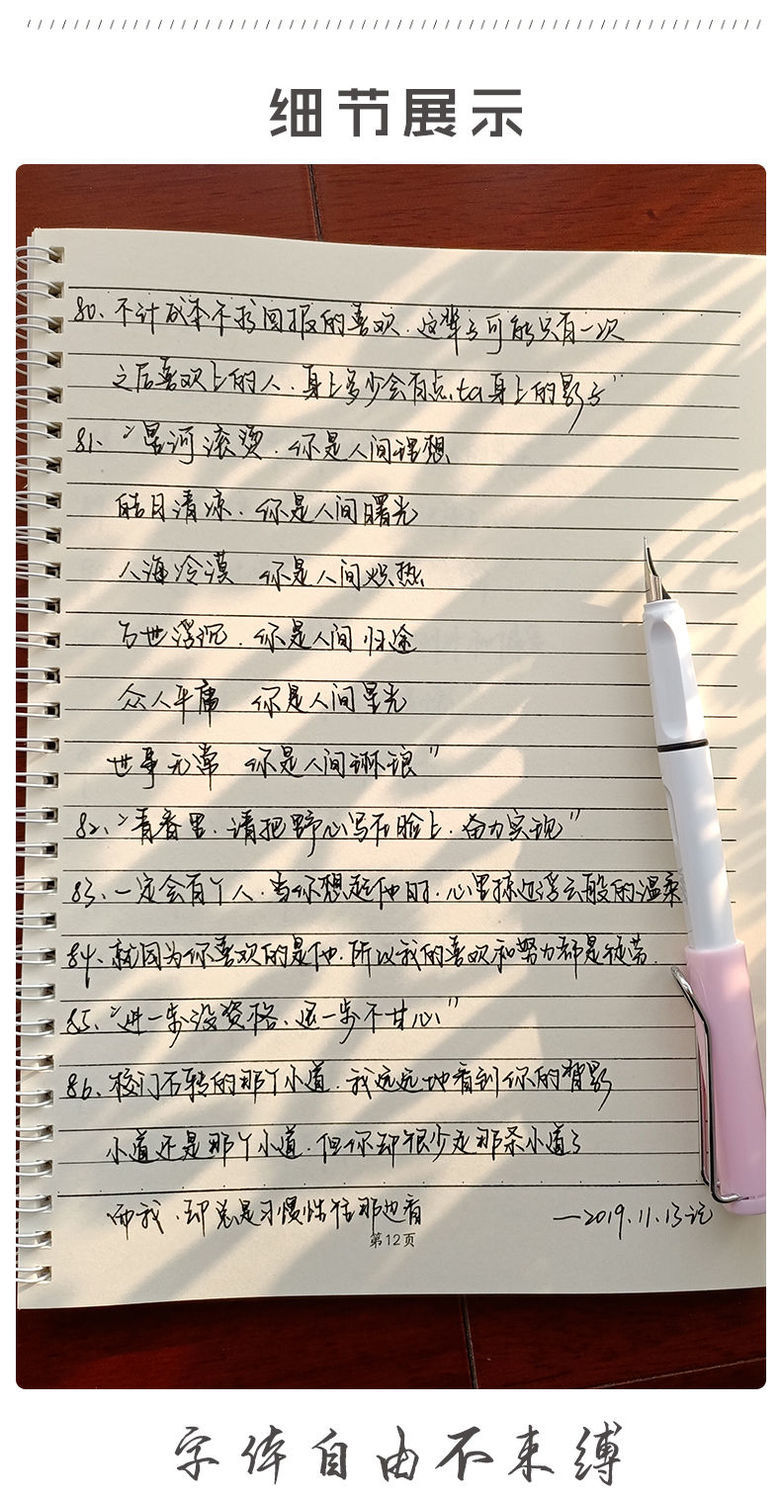 细节展示
80、不计成本不求回报的喜欢.这辈子可能只有一次
之后喜欢上的人.身上多少会有点ta身上的影子"
81、"星河滚烫.你是人间理想
皓月清凉.你是人间曙光
人海冷漠 你是人间炽热
万世浮沉.你是人间归途
众人平庸 你是人间星光
世事无常 你是人间琳琅"
82、"青春里.请把野心写在脸上.奋力实现"
83、一定会有个人.当你想起他时.心里掠过浮云般的温柔
84、就因为你喜欢的是他.所以我的喜欢和努力都是徒劳.
85、"进一步没资格、退一步不甘心"
86、校门右转的那个小道.我远远地看到你的背影
小道还是那个小道.但你却很少走那条小道了
而我.却总是习惯性往那边看 —2019.11.13记
第12页
字体自由不束缚